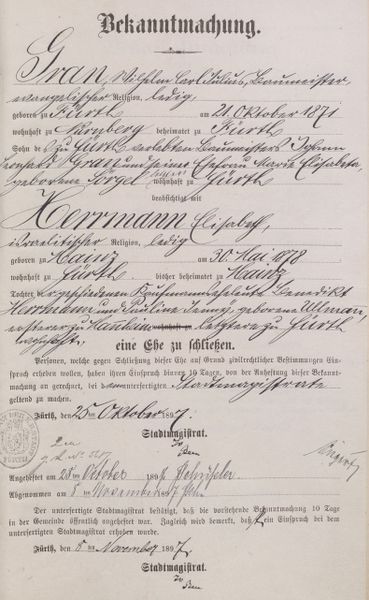 Bekanntmachung.
Gran, Wilhelm Carl Julius, Baumeister,
evangelischer Religion, ledig,
geboren zu Fürth am 21. Oktober 1871
wohnhaft zu Nürnberg beheimatet zu Fürth
Sohn des zu Fürth verlebten Baumeisters Johann
Leonhard Gran und seiner Ehefrau Marie Elisabeta,
geborene Görgel wohnhaft zu Fürth
beabsichtigt mit
Herrmann Elisabeth,
israelitischer Religion, ledig
geboren zu Mainz am 30 Mai 1878
wohnhaft zu Fürth bisher beheimatet zu Mainz
Tochter der geschiedenen Kaufmannseheleute Benedikt
Herrmann und Pauline Jenny, geborene Ullmann,
ersterer zu wohnhaft zu letztere zu Fürth
wohnhaft,
eine Ehe zu schließen.
Personen, welche gegen Schließung dieser Ehe auf Grund zivilrechtlicher Bestimmungen Ein-
spruch erheben wollen, haben ihren Einspruch binnen 10 Tagen, von der Anheftung dieser Bekannt-
machung an gerechnet, bei dem unterfertigten Stadtmagistrate
geltend zu machen.
Fürth, den 25ten Oktober 1897.
Stadtmagistrat.
Angeheftet am 28ten Oktober 1897
Abgenommen am 8 November 1897
Der unterfertigte Stadtmagistrat bestätigt, daß die vorstehende Bekanntmachung 10 Tage
in der Gemeinde öffentlich angeheftet war. Zugleich wird bemerkt, daß kein Einspruch bei dem
unterfertigten Stadtmagistrat erhoben wurde.
Fürth, den 8ten November 1897.
Stadtmagistrat.